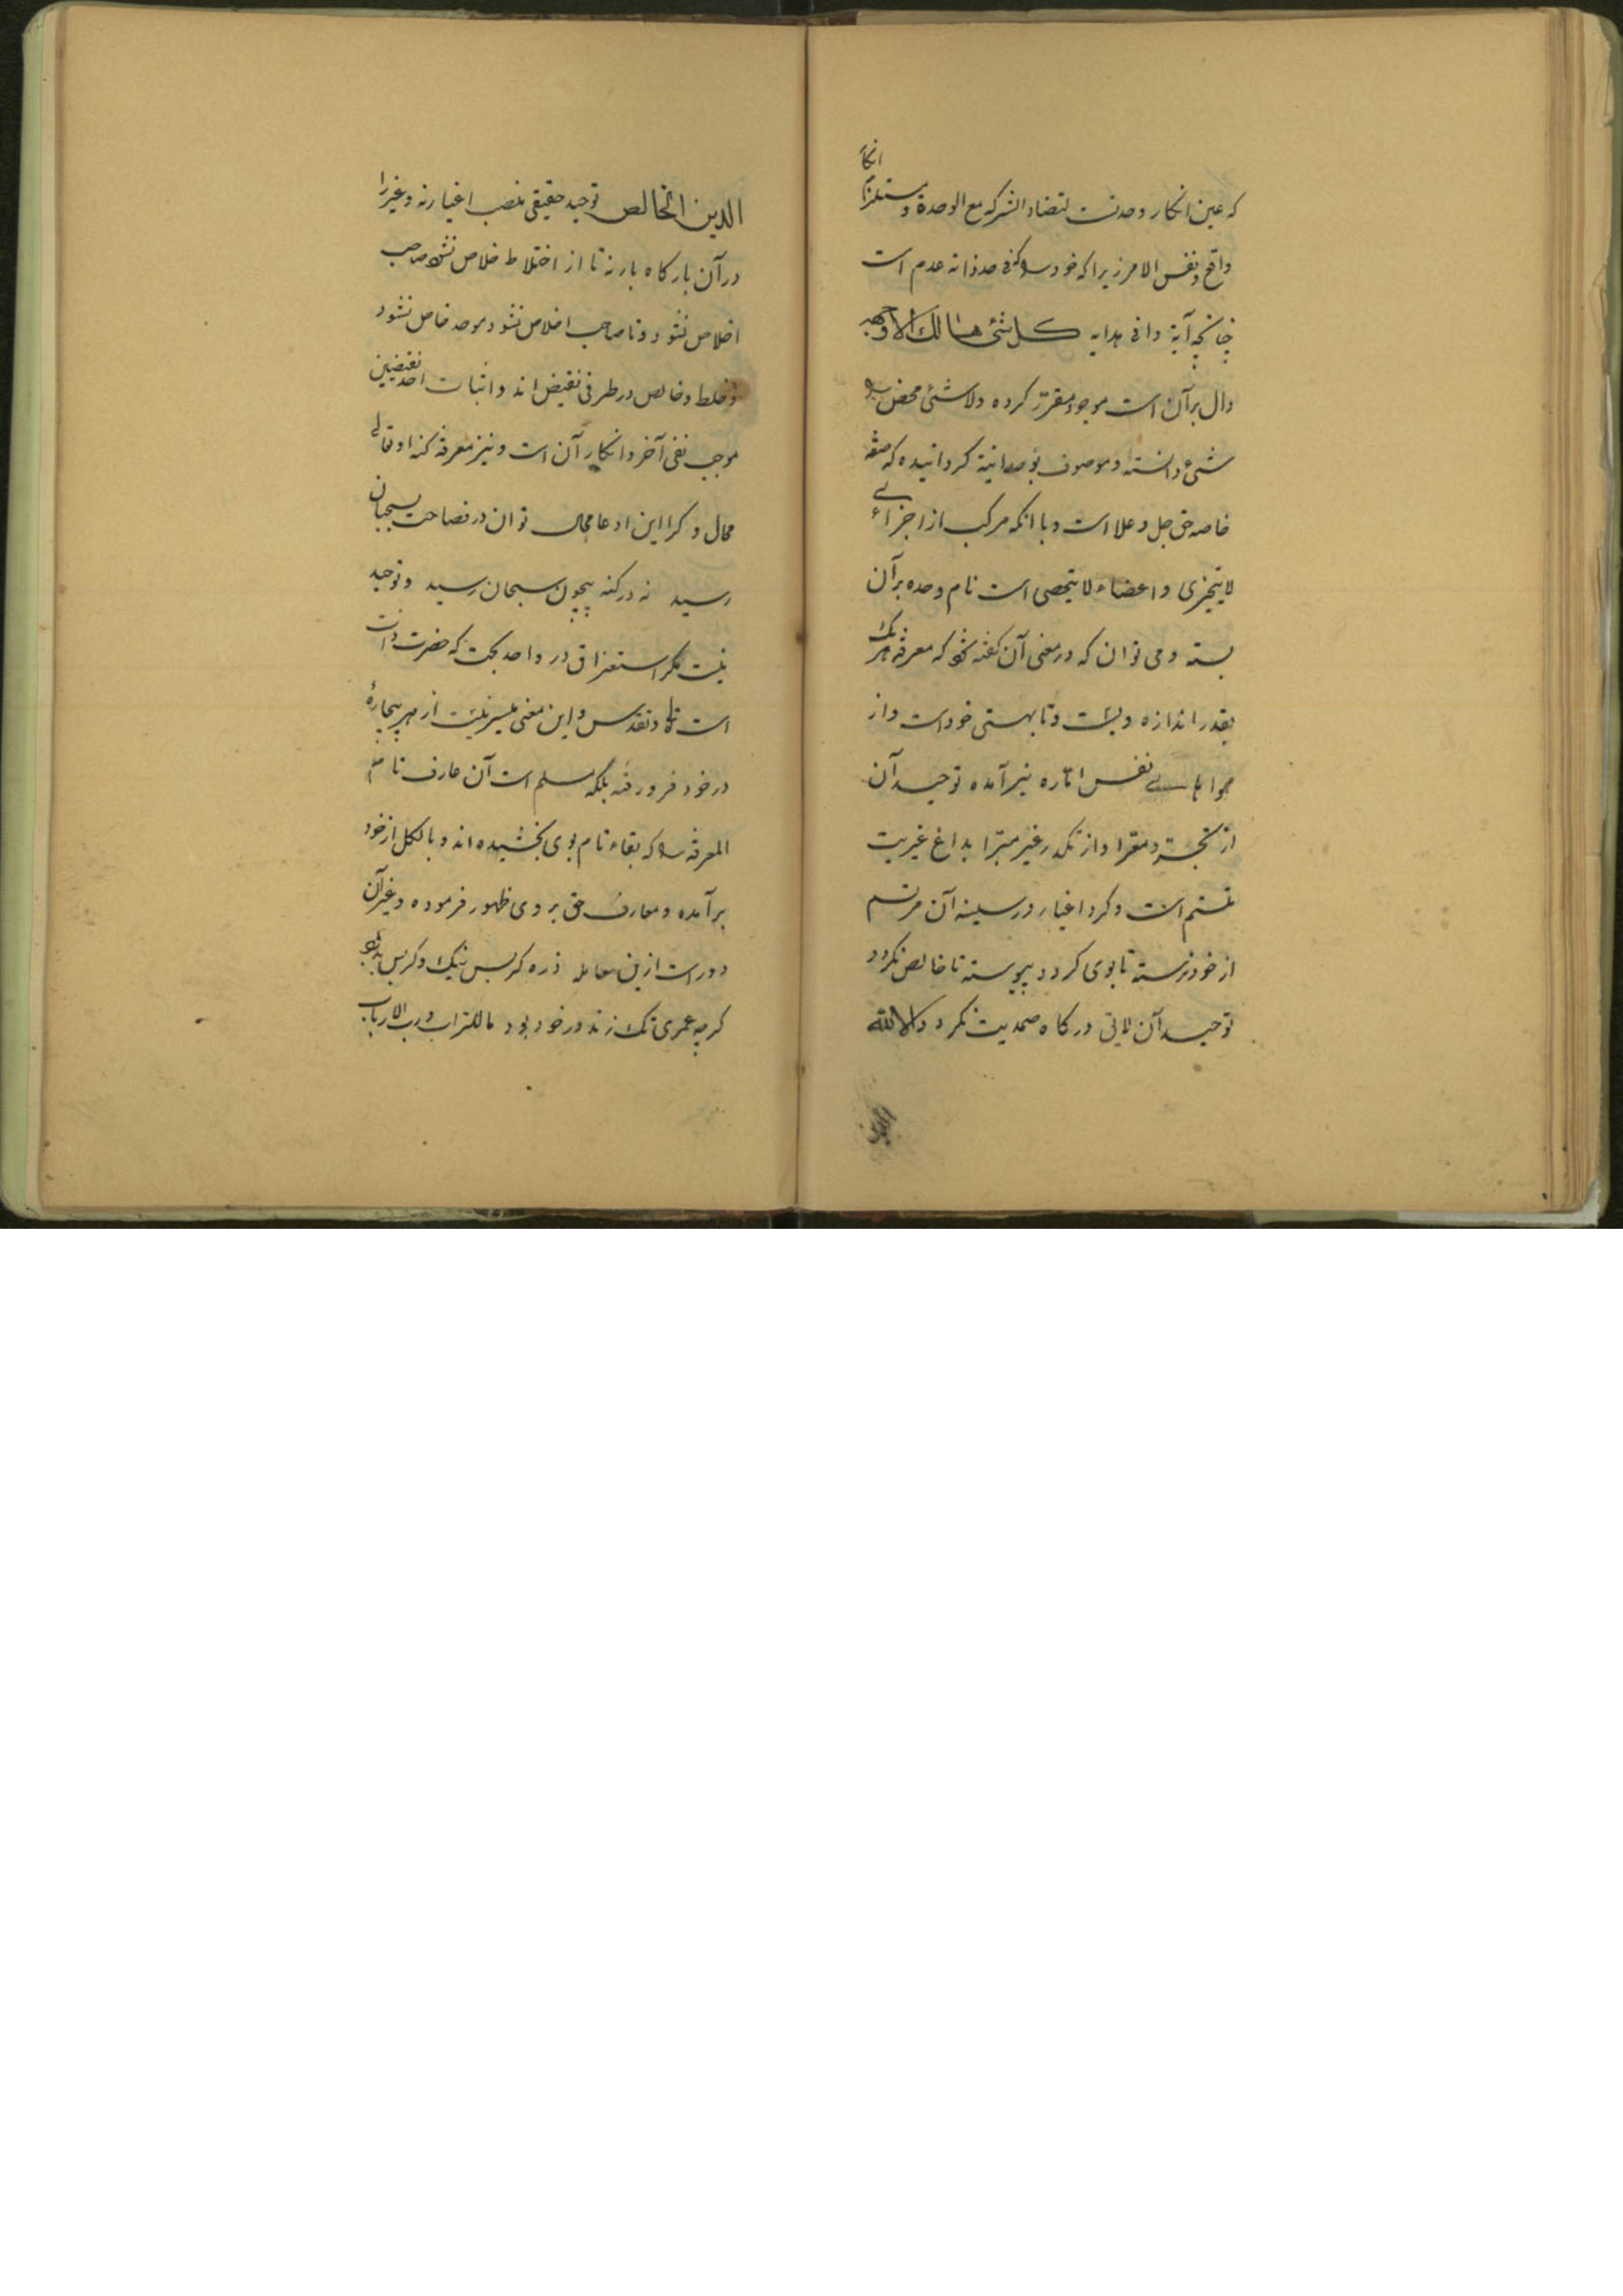 که عین انکار وحدتست لتضاد الشرکه مع الوحدة و مستلزم انکار
واقع و نفس الامر زیرا که خود را که فی حد ذاته عدم است
چنانچه آیة وافی هدایه کل شئ هالک الا وجهه
دال بر آن است موجود مقرّر کرده و لاشئ محض را
شئ دانسته و موصوف بوحدانیة کردانیده که صفة
خاصه حق جل و علا است و با انکه مرکب از اجزائے
لا یتجزی و اعضاء لا یحصی است نام وحده بر آن
بسته و می توان که در معنی آن کفته شود که معرفة هر یک
بقدر اندازه ویست و تا بهستی خود است و از
هوا نفس امّاره نیز آمده توحید آن
از و معرا و از تکدر غیر مبرّا بداغ غیریت
متسم است و کرد اغیار در سینه آن مرتسم
از خود نرسته تا بوی کردد پیوسته تا خالص نکردد
توحید آن لایق درکاه صمدیت نکردد الا لله
الدین
الدین الخالص توحید حقیقی نصب اغیار نه و غیر را
در آن بارکاه بار نه تا از اختلاط خلاص نشود صاحب
اخلاص نشود و تا صاحب اخلاص نشود موحد خاص نشود
و خلط و خالص در طرفی نقیض اند و اثبات احد نقیضین
موجب نفی آخر و انکار آن است و نیز معرفة کنه او تعالی
محال و کرا این ادعا مجال توان در فصاحت بسحبان
رسید نه در کنه بیچون سبحان رسید و توحید
نیست مکر استغراق در واحد بحت که حضرت ذات
است تعالی و تقدس و این معنی میسر نیست از هر بیچارهٔ
در خود فرو رفته بلکه مسلم است آن عارف تام
المعرفه را که بقاء تام بوی بخشیده اند و بالکل از خود
برآمده و معارف حق بر وی ظهور فرموده و غیر آن
دور است ازین معامله ذره کر بس نیک و کر بس بد بود
کرچه عمری تک زند در خود بود ما للتراب و رب الارباب